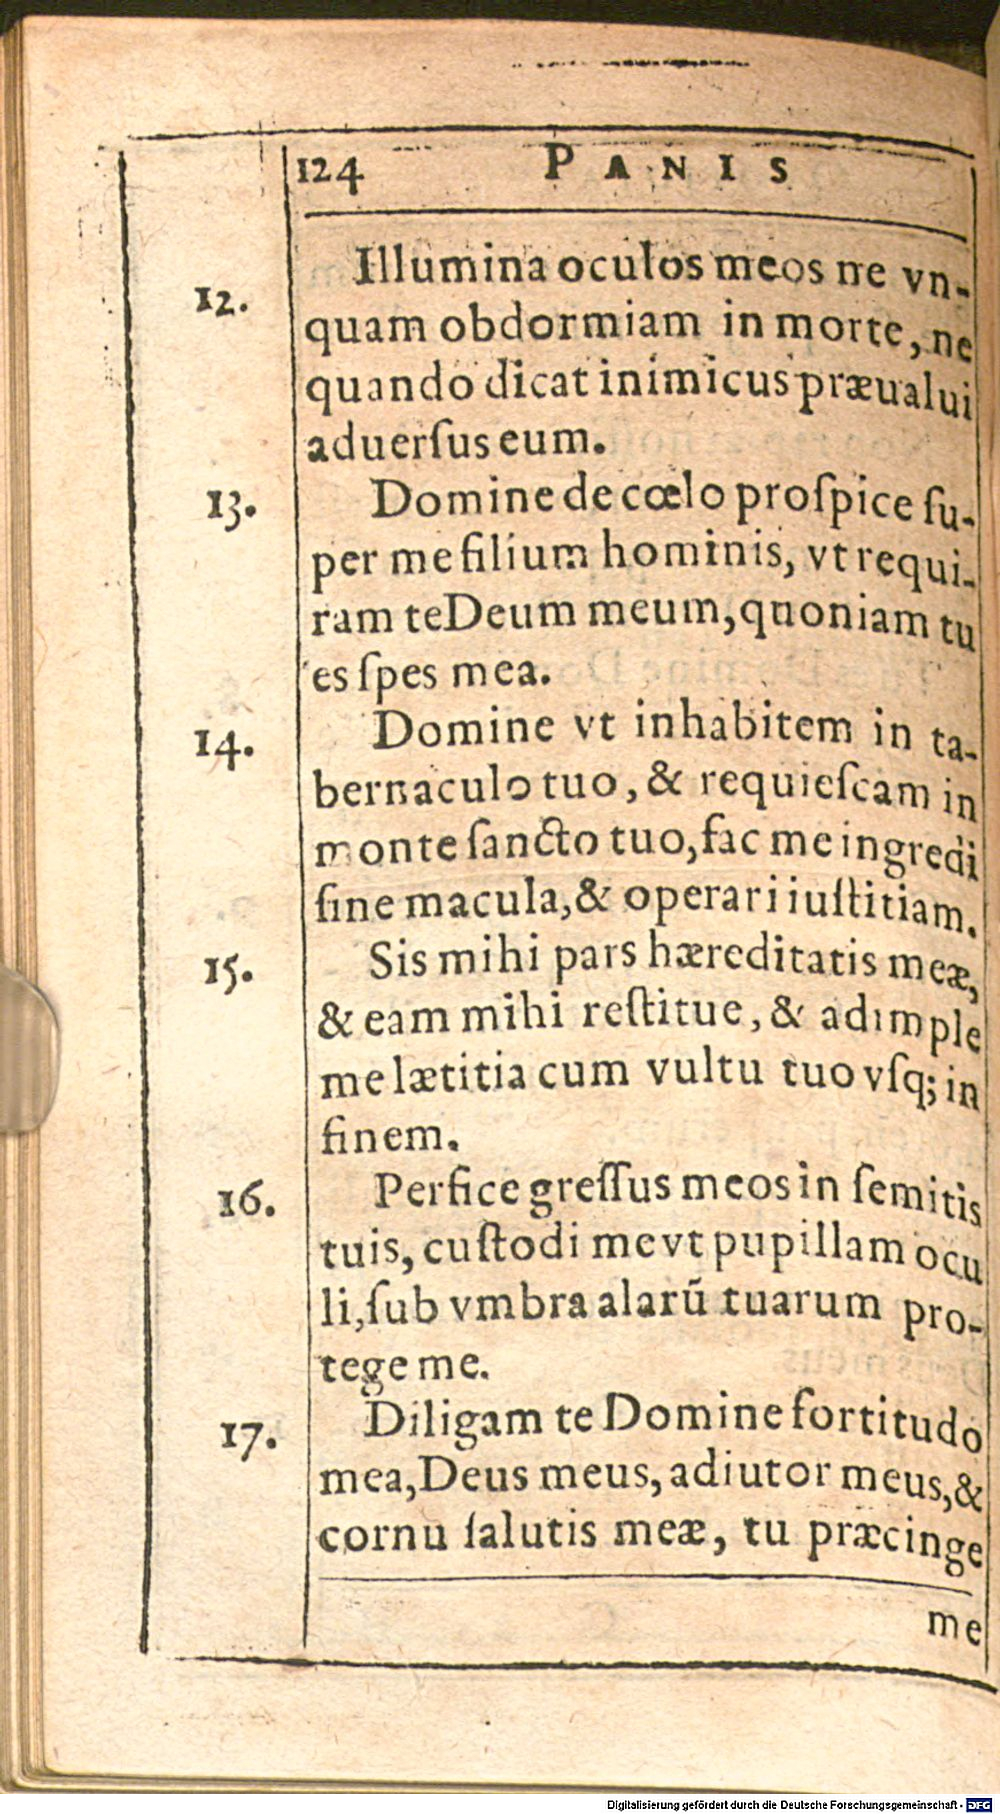 124 PANIS
12. Illumina oculos meos ne vn-
quam obdormiam in morte, ne
quando dicat inimicus præualui
aduerſus eum.
13. Domine de cœlo proſpice ſu-
per me filium hominis, vt requi-
ram te Deum meum, quoniam tu
es ſpes mea.
14. Domine vt inhabitem in ta-
bernaculo tuo, & requieſcam in
monte ſancto tuo, fac me ingredi
ſine macula, & operari iuſtitiam.
15. Sis mihi pars hæreditatis meæ,
& eam mihi reſtitue, & adimple
me lætitia cum vultu tuo vſq; in
finem.
16. Perfice greſſus meos in ſemitis
tuis, cuſtodi me vt pupillam ocu
li, ſub vmbra alarũ tuarum pro-
tege me.
17. Diligam te Domine fortitudo
mea, Deus meus, adiutor meus, &
cornu ſalutis meæ, tu præcinge
me
Digitalisierung gefördert durch die Deutsche Forschungsgemeinschaft - DFG